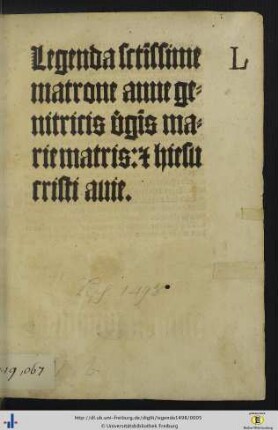 Legenda sctissime
matrone anne ge-
nitricis v̄gīs ma-
rie matris: ⁊ hiesu
cristi auie.
L
http://dl.ub.uni-freiburg.de/diglit/legenda1498/0005
© Universitätsbibliothek Freiburg